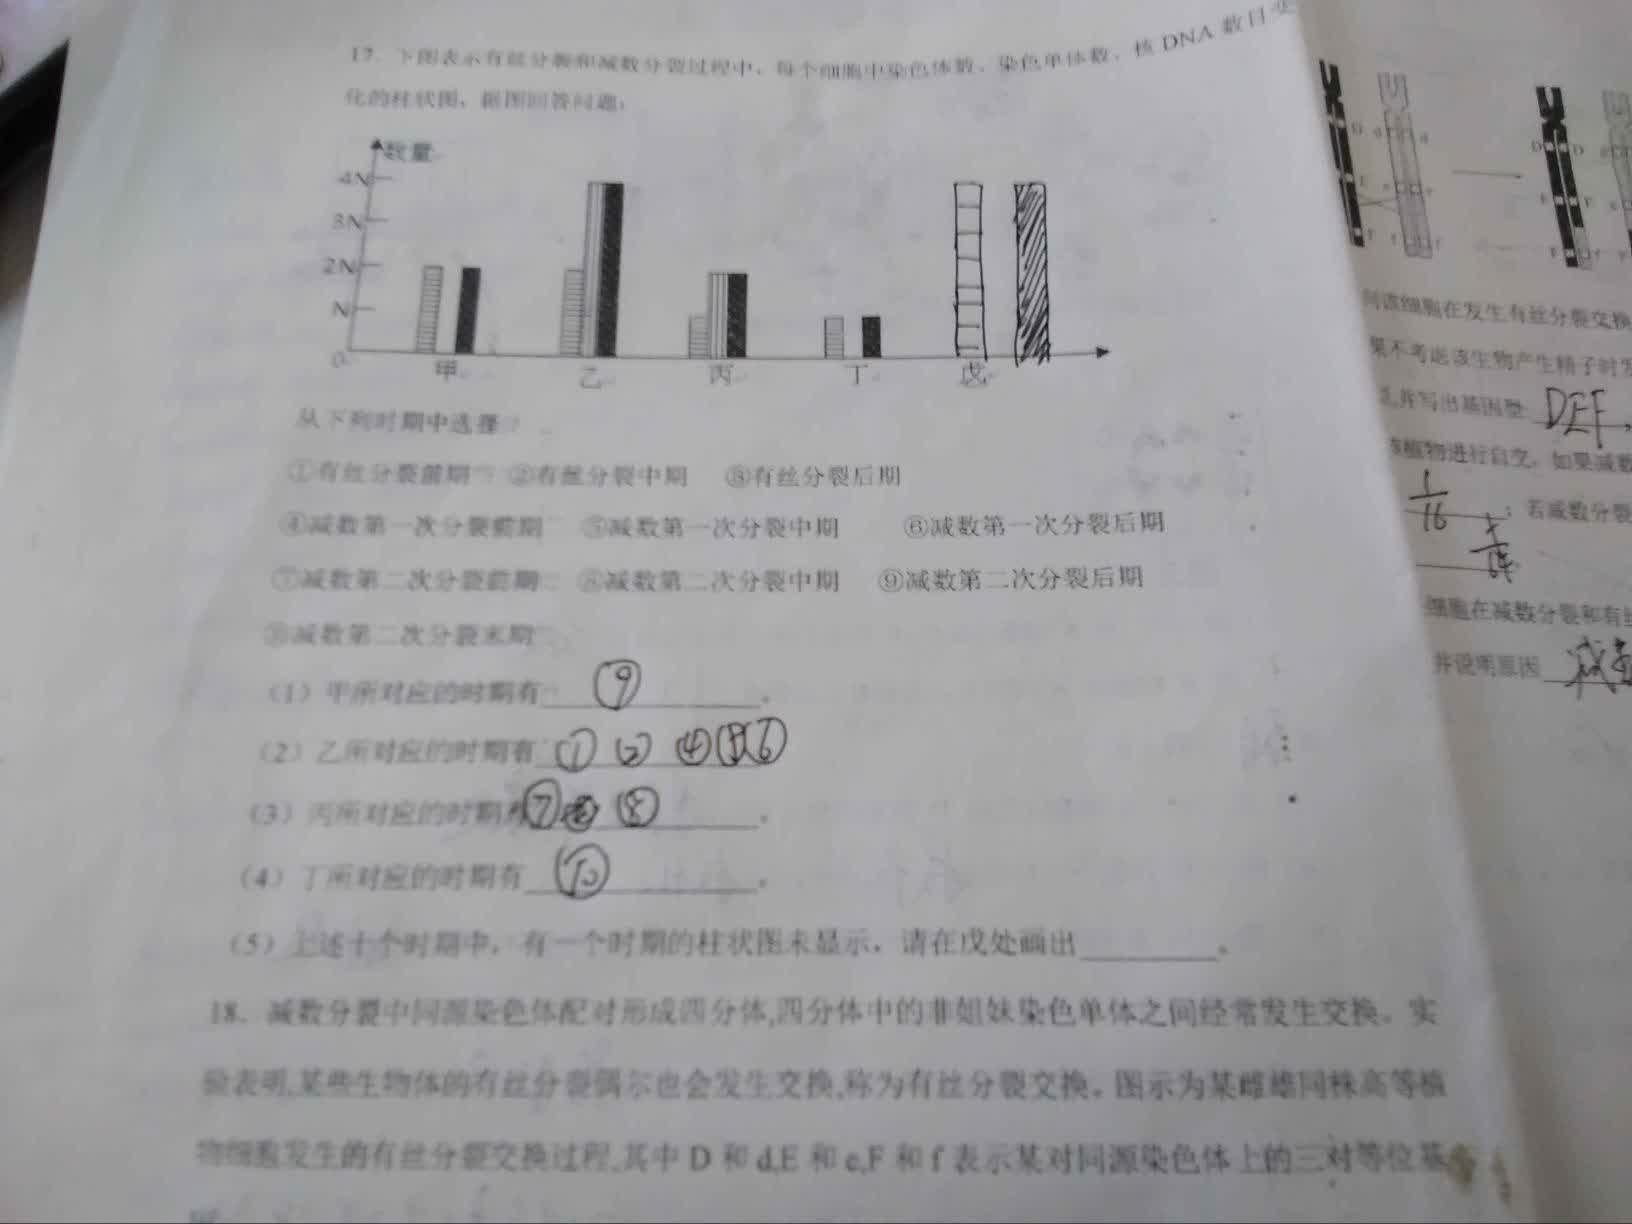 17. 下图表示有丝分裂和减数分裂过程中，每个细胞中染色体数、染色单体数、核DNA数目变
化的柱状图，据图回答问题：
数量
4N
3N
2N
N
0
甲 乙 丙 丁 戊
从下列时期中选择
①有丝分裂前期 ②有丝分裂中期 ③有丝分裂后期
④减数第一次分裂前期 ⑤减数第一次分裂中期 ⑥减数第一次分裂后期
⑦减数第二次分裂前期 ⑧减数第二次分裂中期 ⑨减数第二次分裂后期
⑩减数第二次分裂末期
（1）甲所对应的时期有 ⑨ 。
（2）乙所对应的时期有 ① ② ④ ⑤ ⑥
（3）丙所对应的时期有 ⑦ ⑧ 。
（4）丁所对应的时期有 ⑩ 。
（5）上述十个时期中，有一个时期的柱状图未显示，请在戊处画出 。
18. 减数分裂中同源染色体配对形成四分体,四分体中的非姐妹染色单体之间经常发生交换。实
验表明,某些生物体的有丝分裂偶尔也会发生交换,称为有丝分裂交换。图示为某雌雄同株高等植
物细胞发生的有丝分裂交换过程,其中 D 和 d,E 和 e,F 和 f 表示某对同源染色体上的三对等位基
该细胞在发生有丝分裂交换
果不考虑该生物产生精子时发
并写出基因型 DEF ,
植物进行自交，如果减数
1/16 ；若减数分裂
细胞在减数分裂和有丝
并说明原因 减数